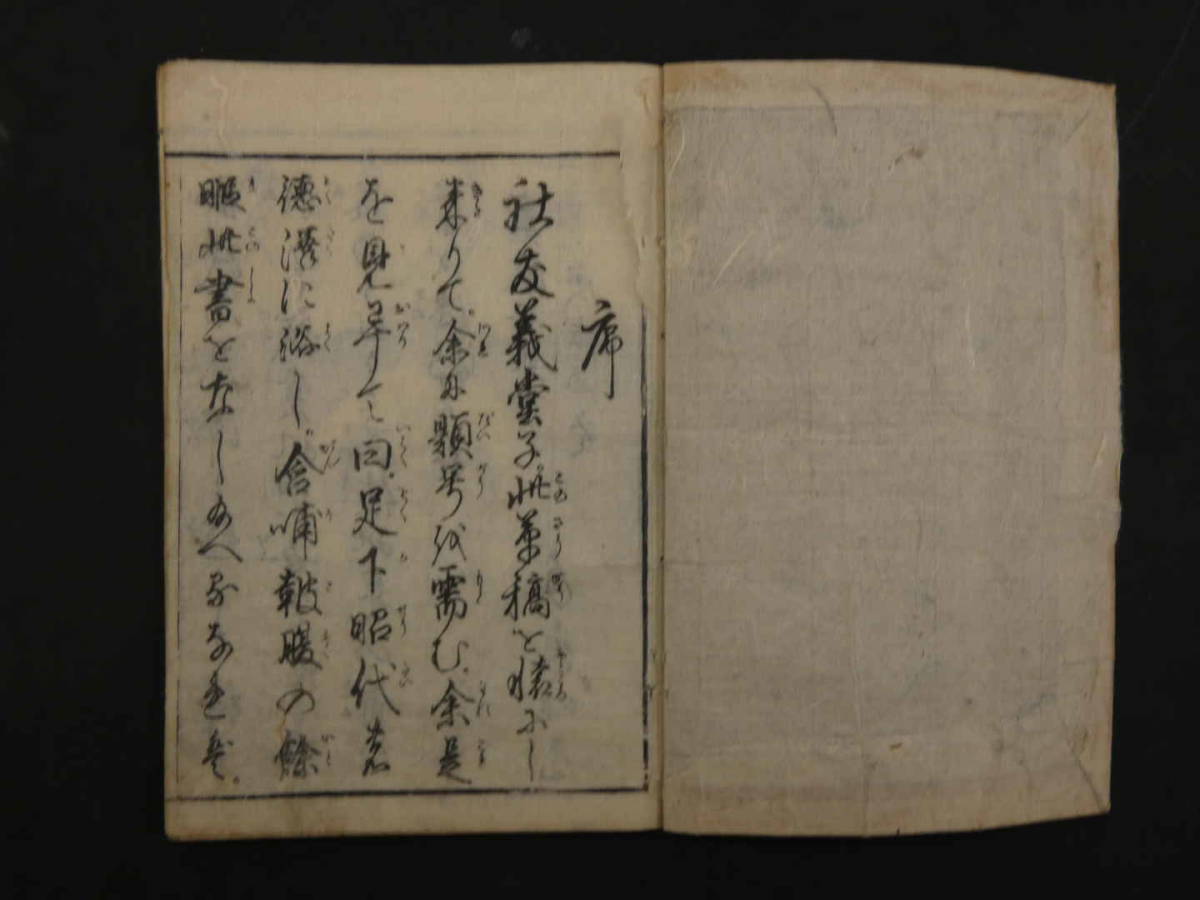 序
社友義堂子此草稿を懐にし
来りて余に題号を需む余是
を見畢て曰足下昭代の
徳沢に浴し含哺鼓腹の余
暇此書をなし給へるなれば